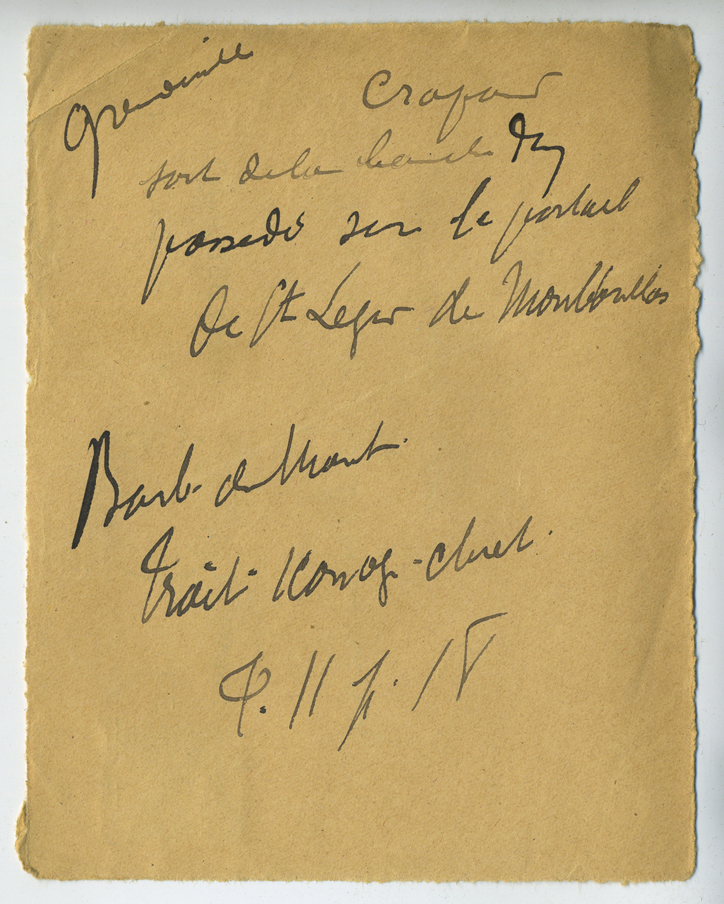 Grenouille
Crapaud
sort de la bouche d'un
possédé sur le portail
de St Leger de Montbrillais
Barb. de Mont.
Trait. Iconog. chret.
T. II p. 18